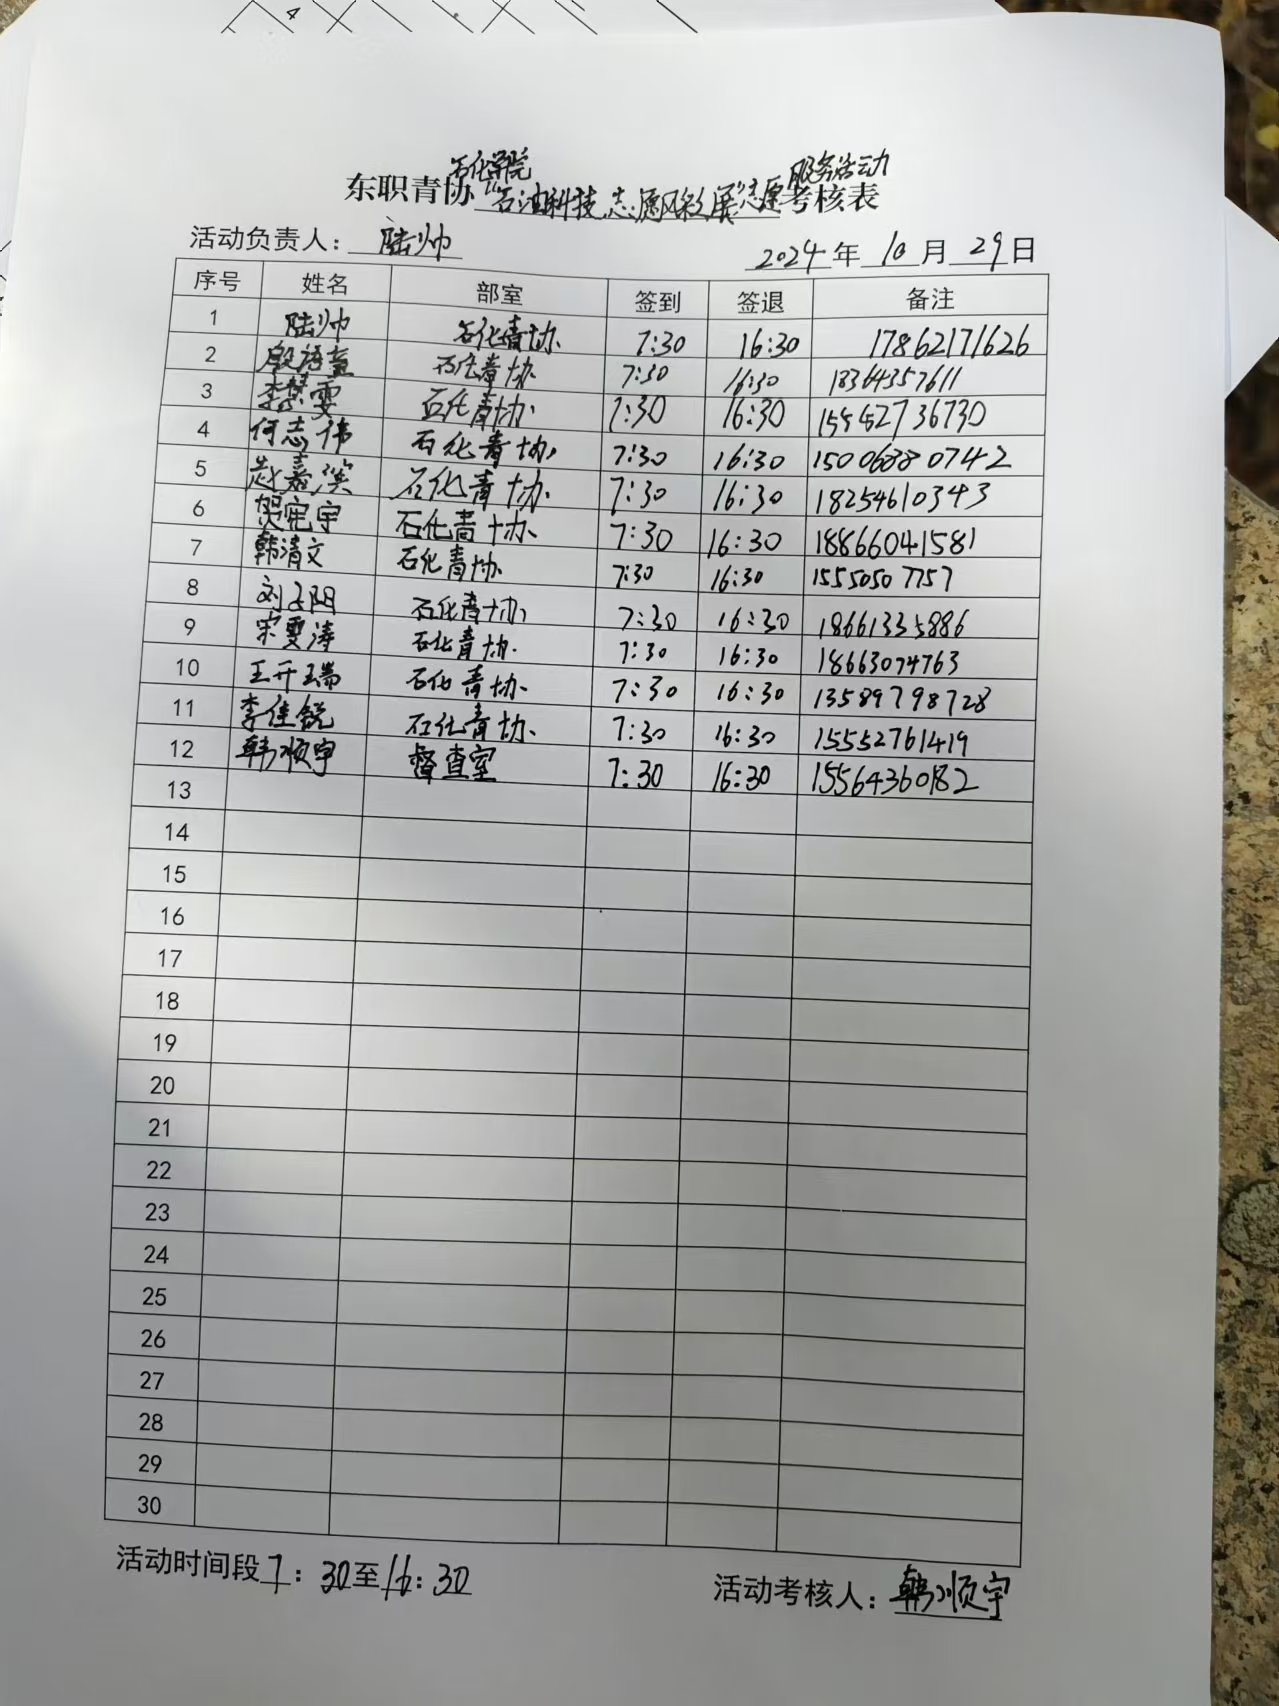 4
石化学院 服务活动
东职青协“石油科技,志愿风彩展”志愿考核表
活动负责人: 陆帅 2024年10月29日
序号 姓名 部室 签到 签退 备注
1 陆帅 石化青协 7:30 16:30 17862171626
2 石化青协 7:30 16:30 18364357611
3 李慧雯 石化青协 7:30 16:30 15552736730
4 何志伟 石化青协 7:30 16:30 15006880742
5 赵嘉滨 石化青协 7:30 16:30 18254610343
6 贺宪宇 石化青协 7:30 16:30 18866041581
7 韩清文 石化青协 7:30 16:30 15550507757
8 刘子阳 石化青协 7:30 16:30 18661335886
9 宋雯涛 石化青协 7:30 16:30 18663074763
10 王开瑞 石化青协 7:30 16:30 13589798728
11 李佳锐 石化青协 7:30 16:30 15552761419
12 韩顺宇 督查室 7:30 16:30 15564360182
13
14
15
16
17
18
19
20
21
22
23
24
25
26
27
28
29
30
活动时间段7:30至16:30 活动考核人: 韩顺宇